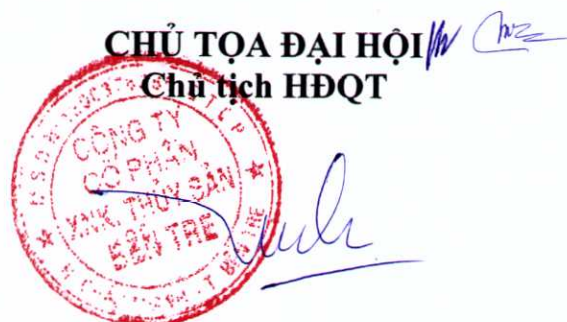 CHỦ TỌA ĐẠI HỘI
Chủ tịch HĐQT
CÔNG TY
CỔ PHẦN
XNK. THỦY SẢN
BẾN TRE